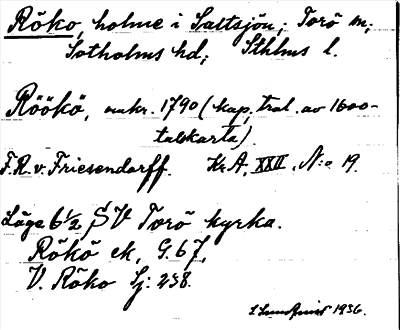 Röko, holme i Saltsjön; Torö sn;
Sotholms hd; Sthlms l.
Röökö, omkr. 1790 (kap, tral. av 1600-
talskarta).
F.R. v. Friesendorff. Kr.A, XXII, N:o 19.
Läge 6½ SV Torö kyrka.
Rökö ek, G. 67,
V. Röko Sj: 238.
Lundqvist 1936.